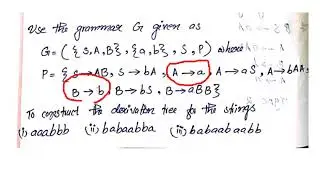 Use the grammar G given as
G = ({S,A,B}, {a,b}, S, P) where
P = {S→AB, S→bA, A→a, A→aS, A→bAA,
B→b, B→bS, B→aBB}
To construct the derivation tree for the strings
(i) aaabbb (ii) babaabba (iii) babaabaabb